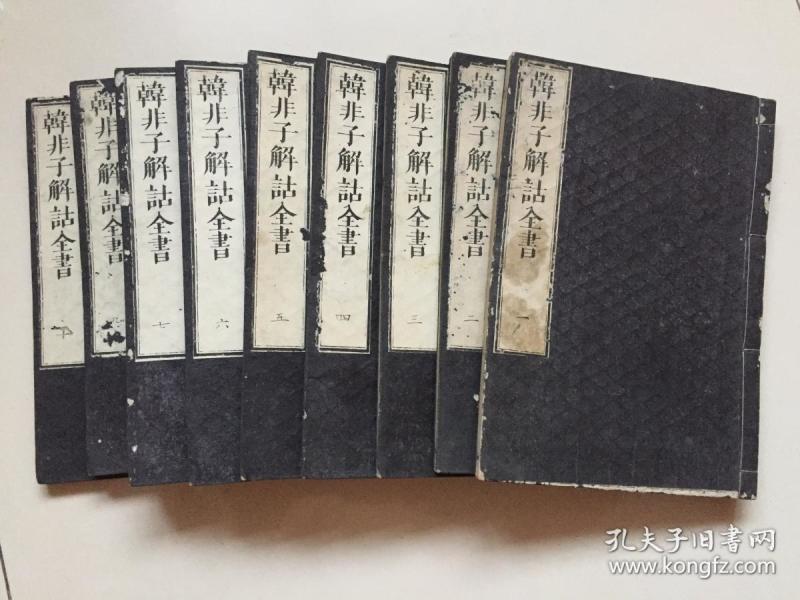 韓非子解詁全書 一
韓非子解詁全書 二
韓非子解詁全書 三
韓非子解詁全書 四
韓非子解詁全書 五
韓非子解詁全書 六
韓非子解詁全書 七
韓非子解詁全書
韓非子解詁全書
孔夫子旧书网
www.kongfz.com